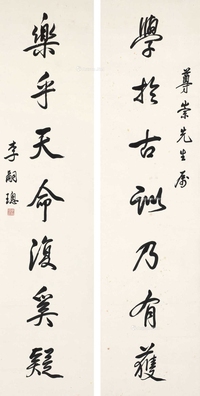 尊崇先生属
學於古訓乃有獲
樂乎天命復奚疑
李嗣璁